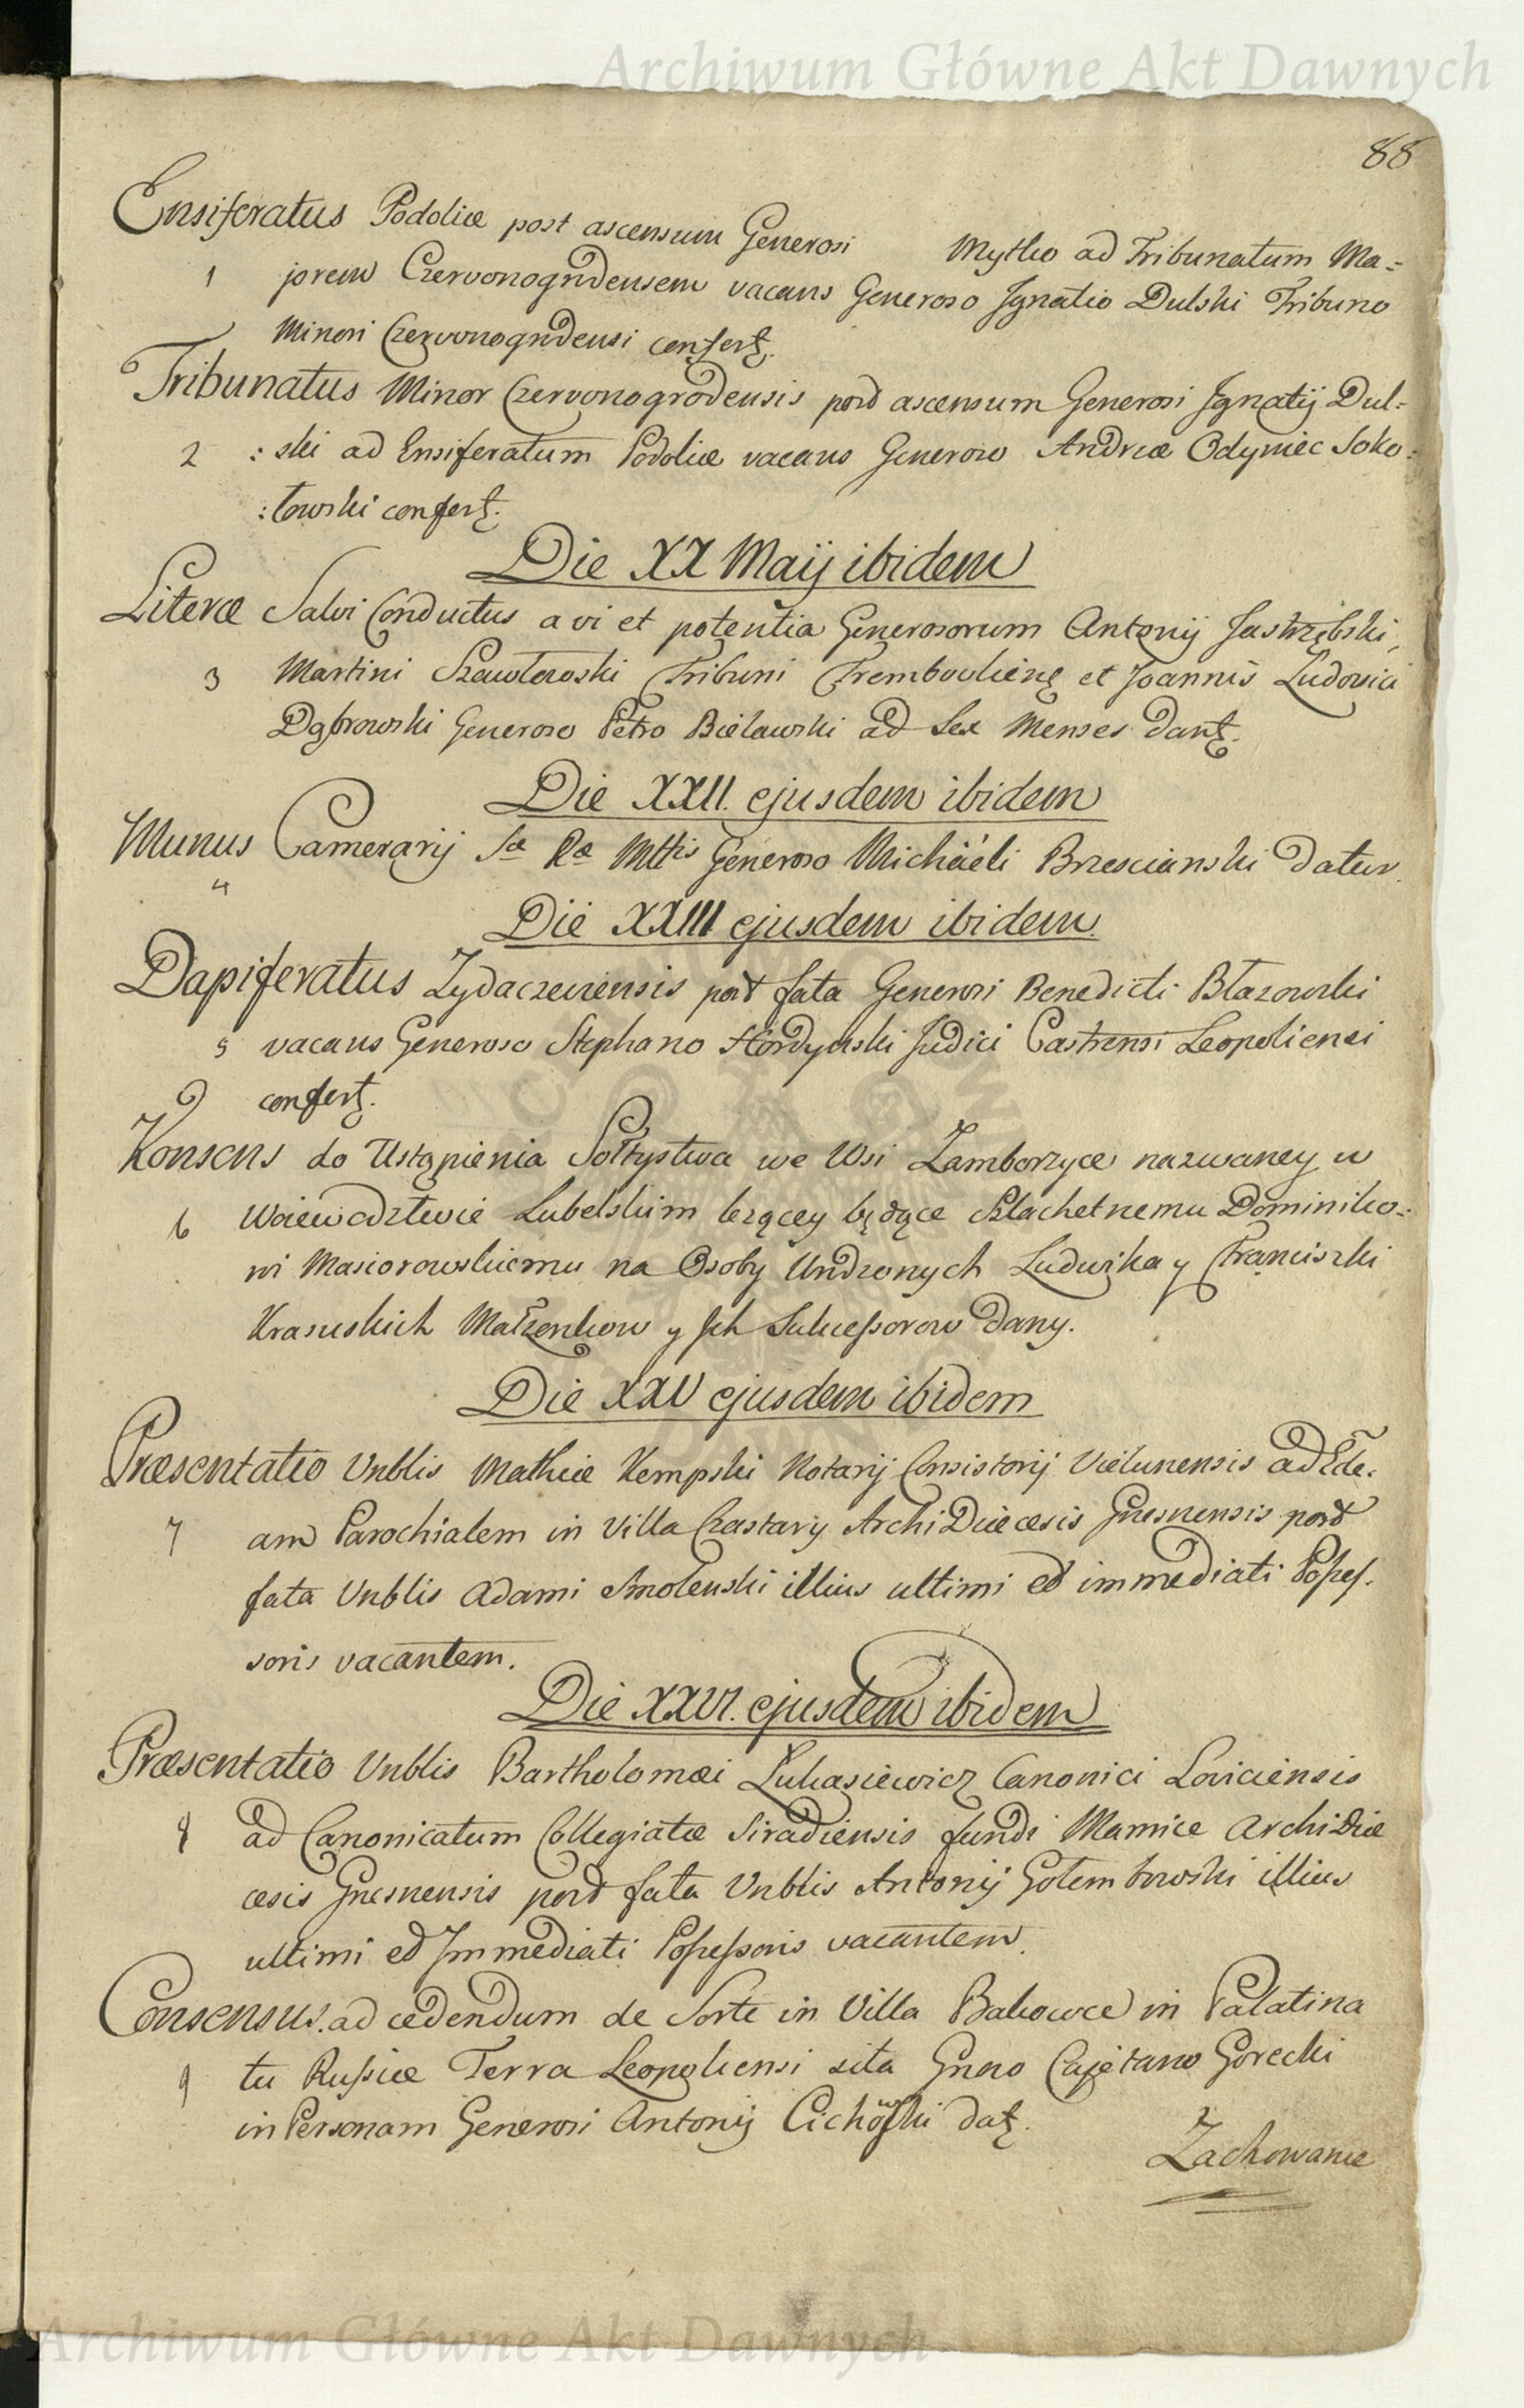 Archiwum Główne Akt Dawnych
88
Ensiferatus Podoliæ post ascensum Generosi Mytko ad Tribunatum Ma=
1 jorem Czervonogrdensem vacans Generoso Ignatio Dulski Tribuno
Minori Czervonogrdensi confert.
Tribunatus Minor Czervonogrodensis post ascensum Generosi Ignatij Dul=
2 :ski ad Ensiferatum Podoliæ vacans Generoso Andreæ Odyniec Soko=
:łowski confert.
Die XX Maij ibidem
Literæ Salvi Conductus a vi et potentia Generosorum Antonij Jastrzębski,
3 Martini Szawłowski Tribuni Tremboulieng et Joannis Ludovici
Dąbrowski Generoso Petro Bielawski ad Sex Menses dant.
Die XXII. ejusdem ibidem
Munus Camerarij Sæ Ræ Mttis Generoso Michaéli Brzescianski datur.
4
Die XXIII ejusdem ibidem.
Dapiferatus Zydaczeviensis post fata Generosi Benedicti Błazowski
5 vacans Generoso Stephano Hordynski Judici Castrensi Leopoliensi
confert.
Konsens do Ustąpienia Sołtystwa we Wsi Zamborzyce nazwaney w
6 Woiewodztwie Lubelskim lezącey będące Szlachetnemu Dominiko=
wi Masiorowskiemu na Osoby Urodzonych Ludwika y Franciszki
Krasuskich Małzonkow y Ich Sukcessorow dany.
Die XXV ejusdem ibidem
Præsentatio Vnblis Mathiæ Kempski Notarij Consistorij Vielunensis ad Ede=
7 am Parochialem in Villa Czastary ArchiDiæcesis Gnesnensis post
fata Vnblis Adami Smolenski illius ultimi et immediati Posses=
soris vacantem.
Die XXVI. ejusdem ibidem
Præsentatio Vnblis Bartholomæi Łukasiewicz Canonici Loviciensis
8 ad Canonicatum Collegiatæ Siradiensis fundi Mamice Archidiæ
cesis Gnesnensis post fata Vnblis Antonij Gołembowski illius
ultimi et Immediati Possessoris vacantem.
Consensus ad cedendum de Sorte in Villa Bakowce in Palatina
9 tu Russiæ Terra Leopoliensi sita Gnoso Cajetano Gorecki
in Personam Generosi Antonij Cichowski dat.
Zachowanie
Archiwum Główne Akt Dawnych